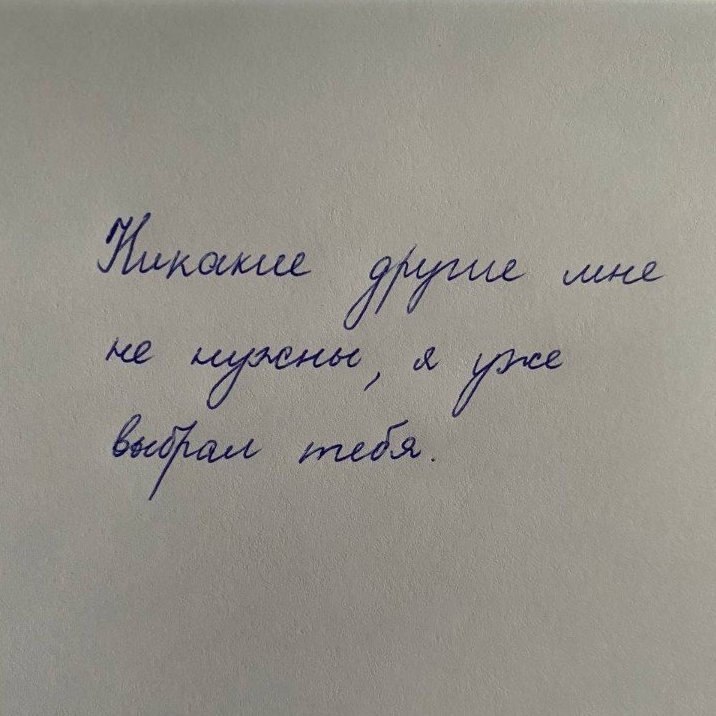 Никакие другие мне
не нужны, я уже
выбрал тебя.